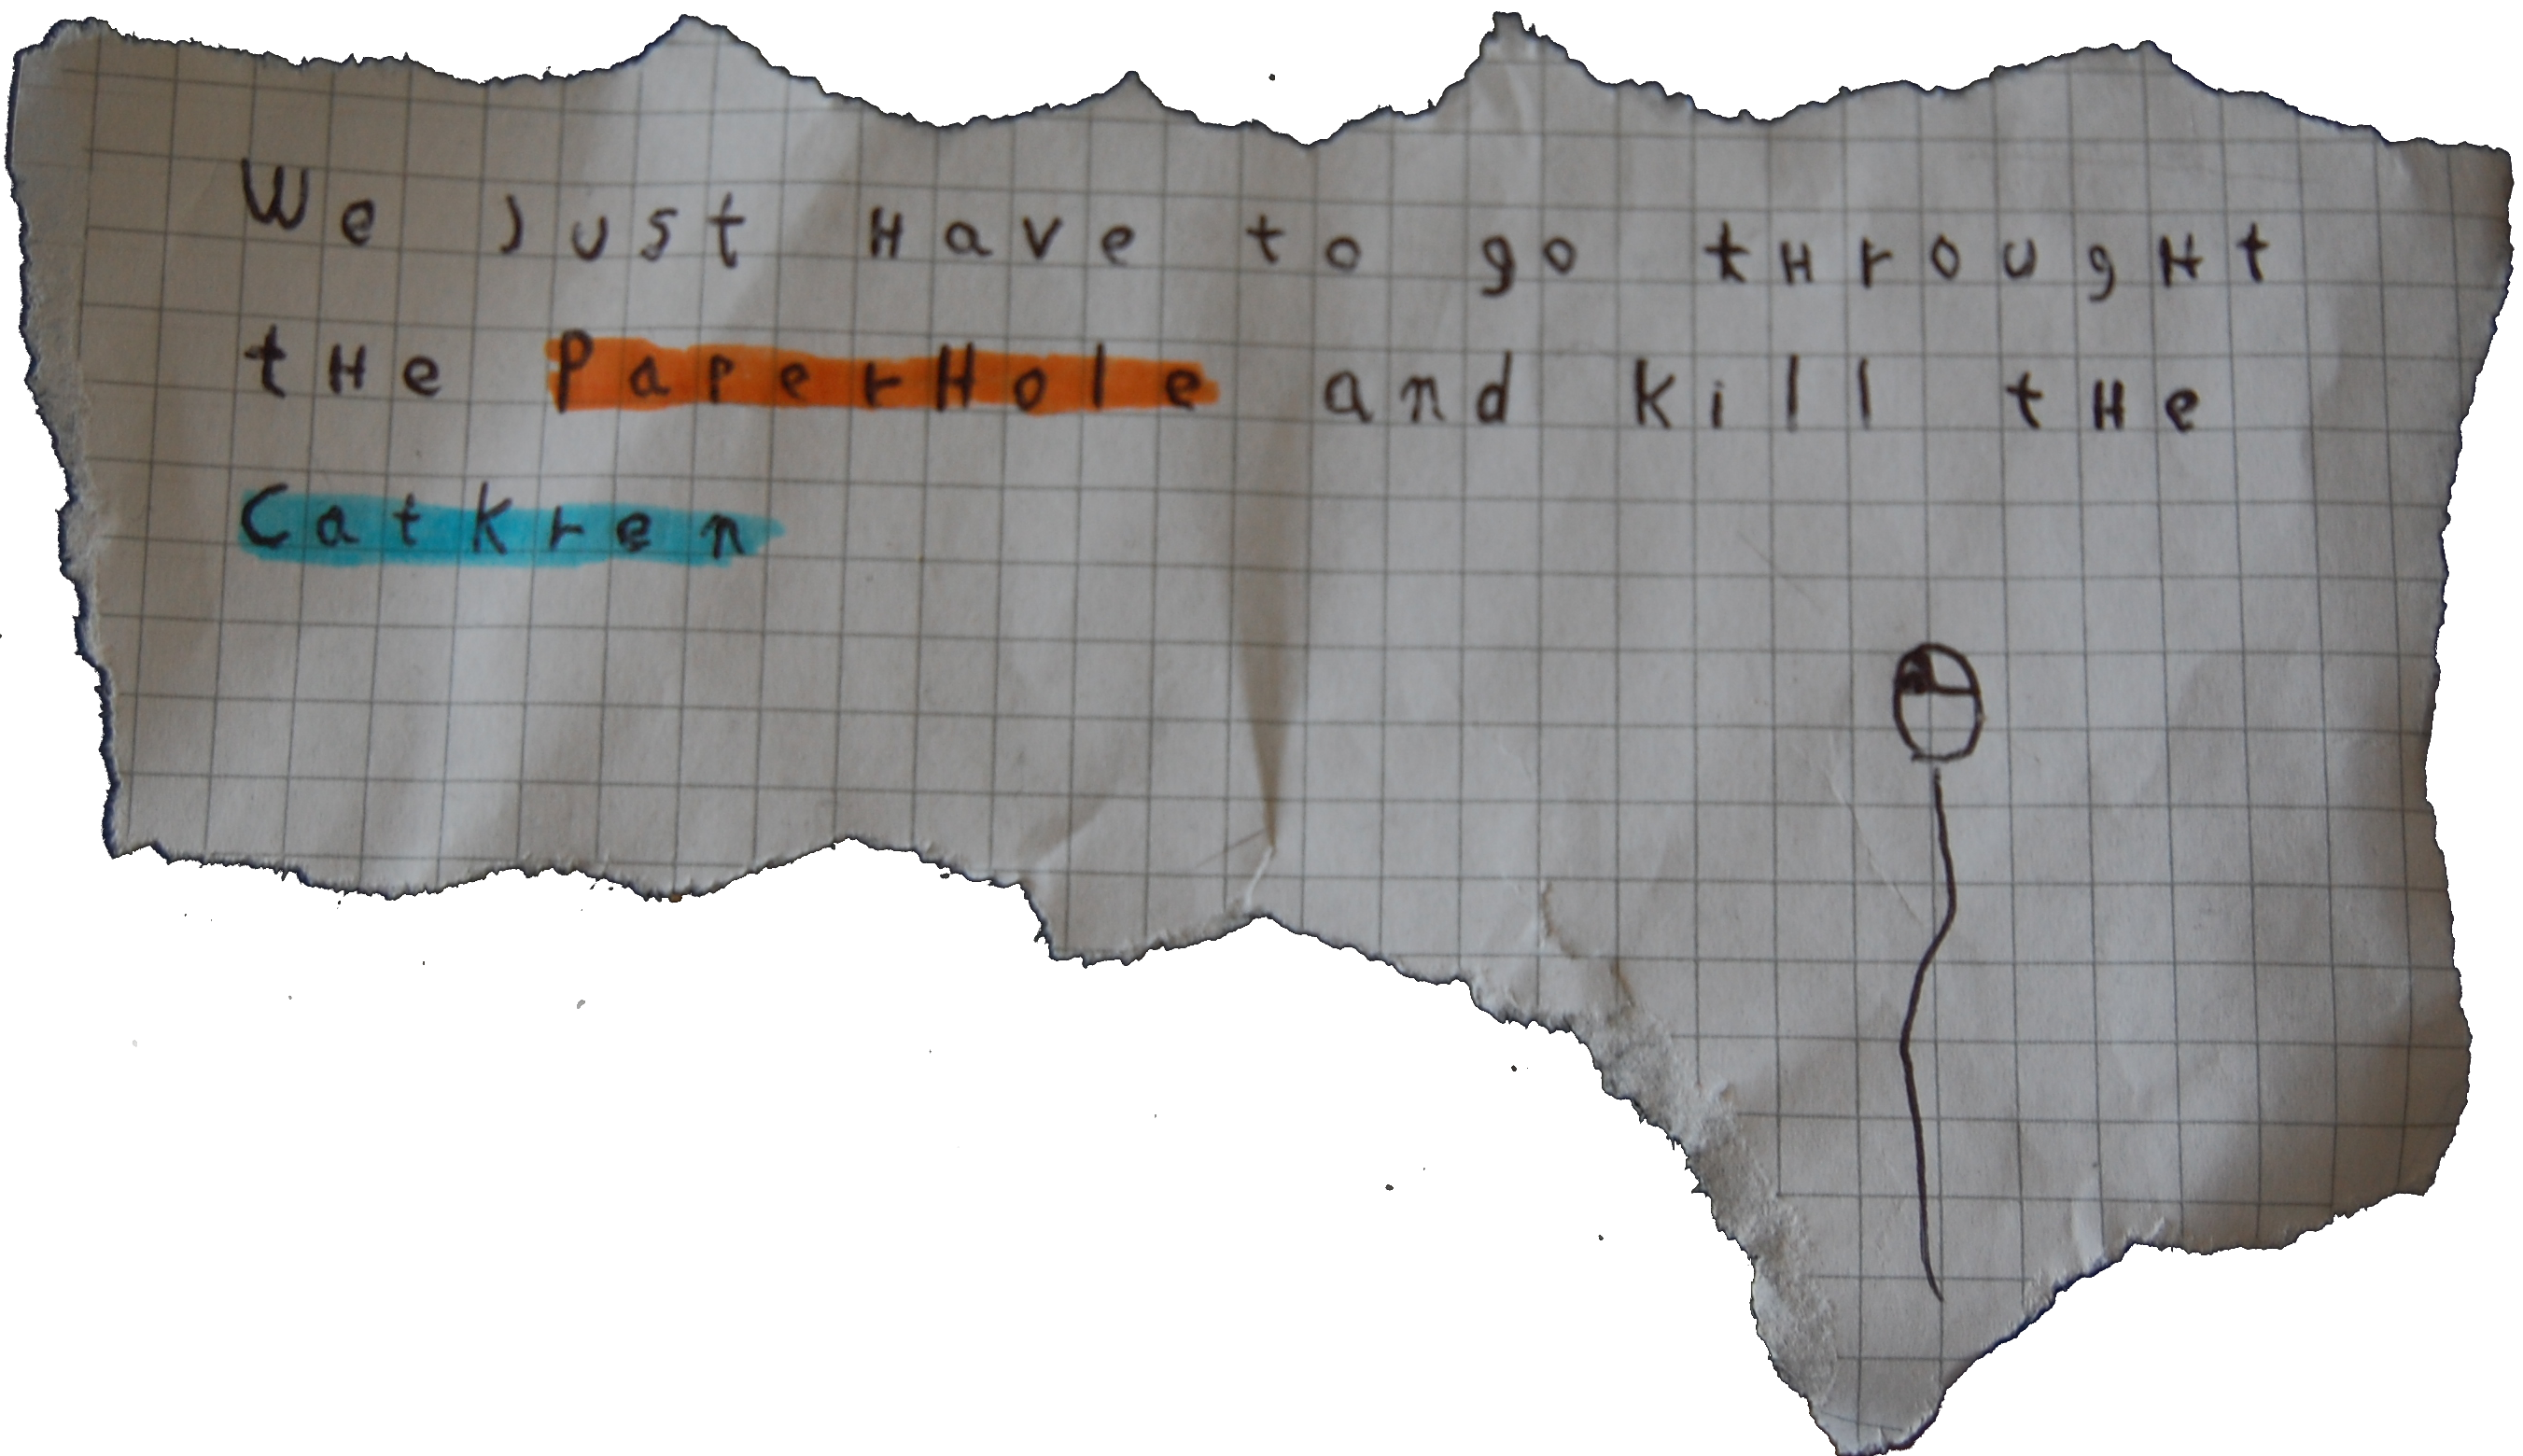 We just Have to go tHrougHt
tHe PaperHole and kill tHe
Catkren